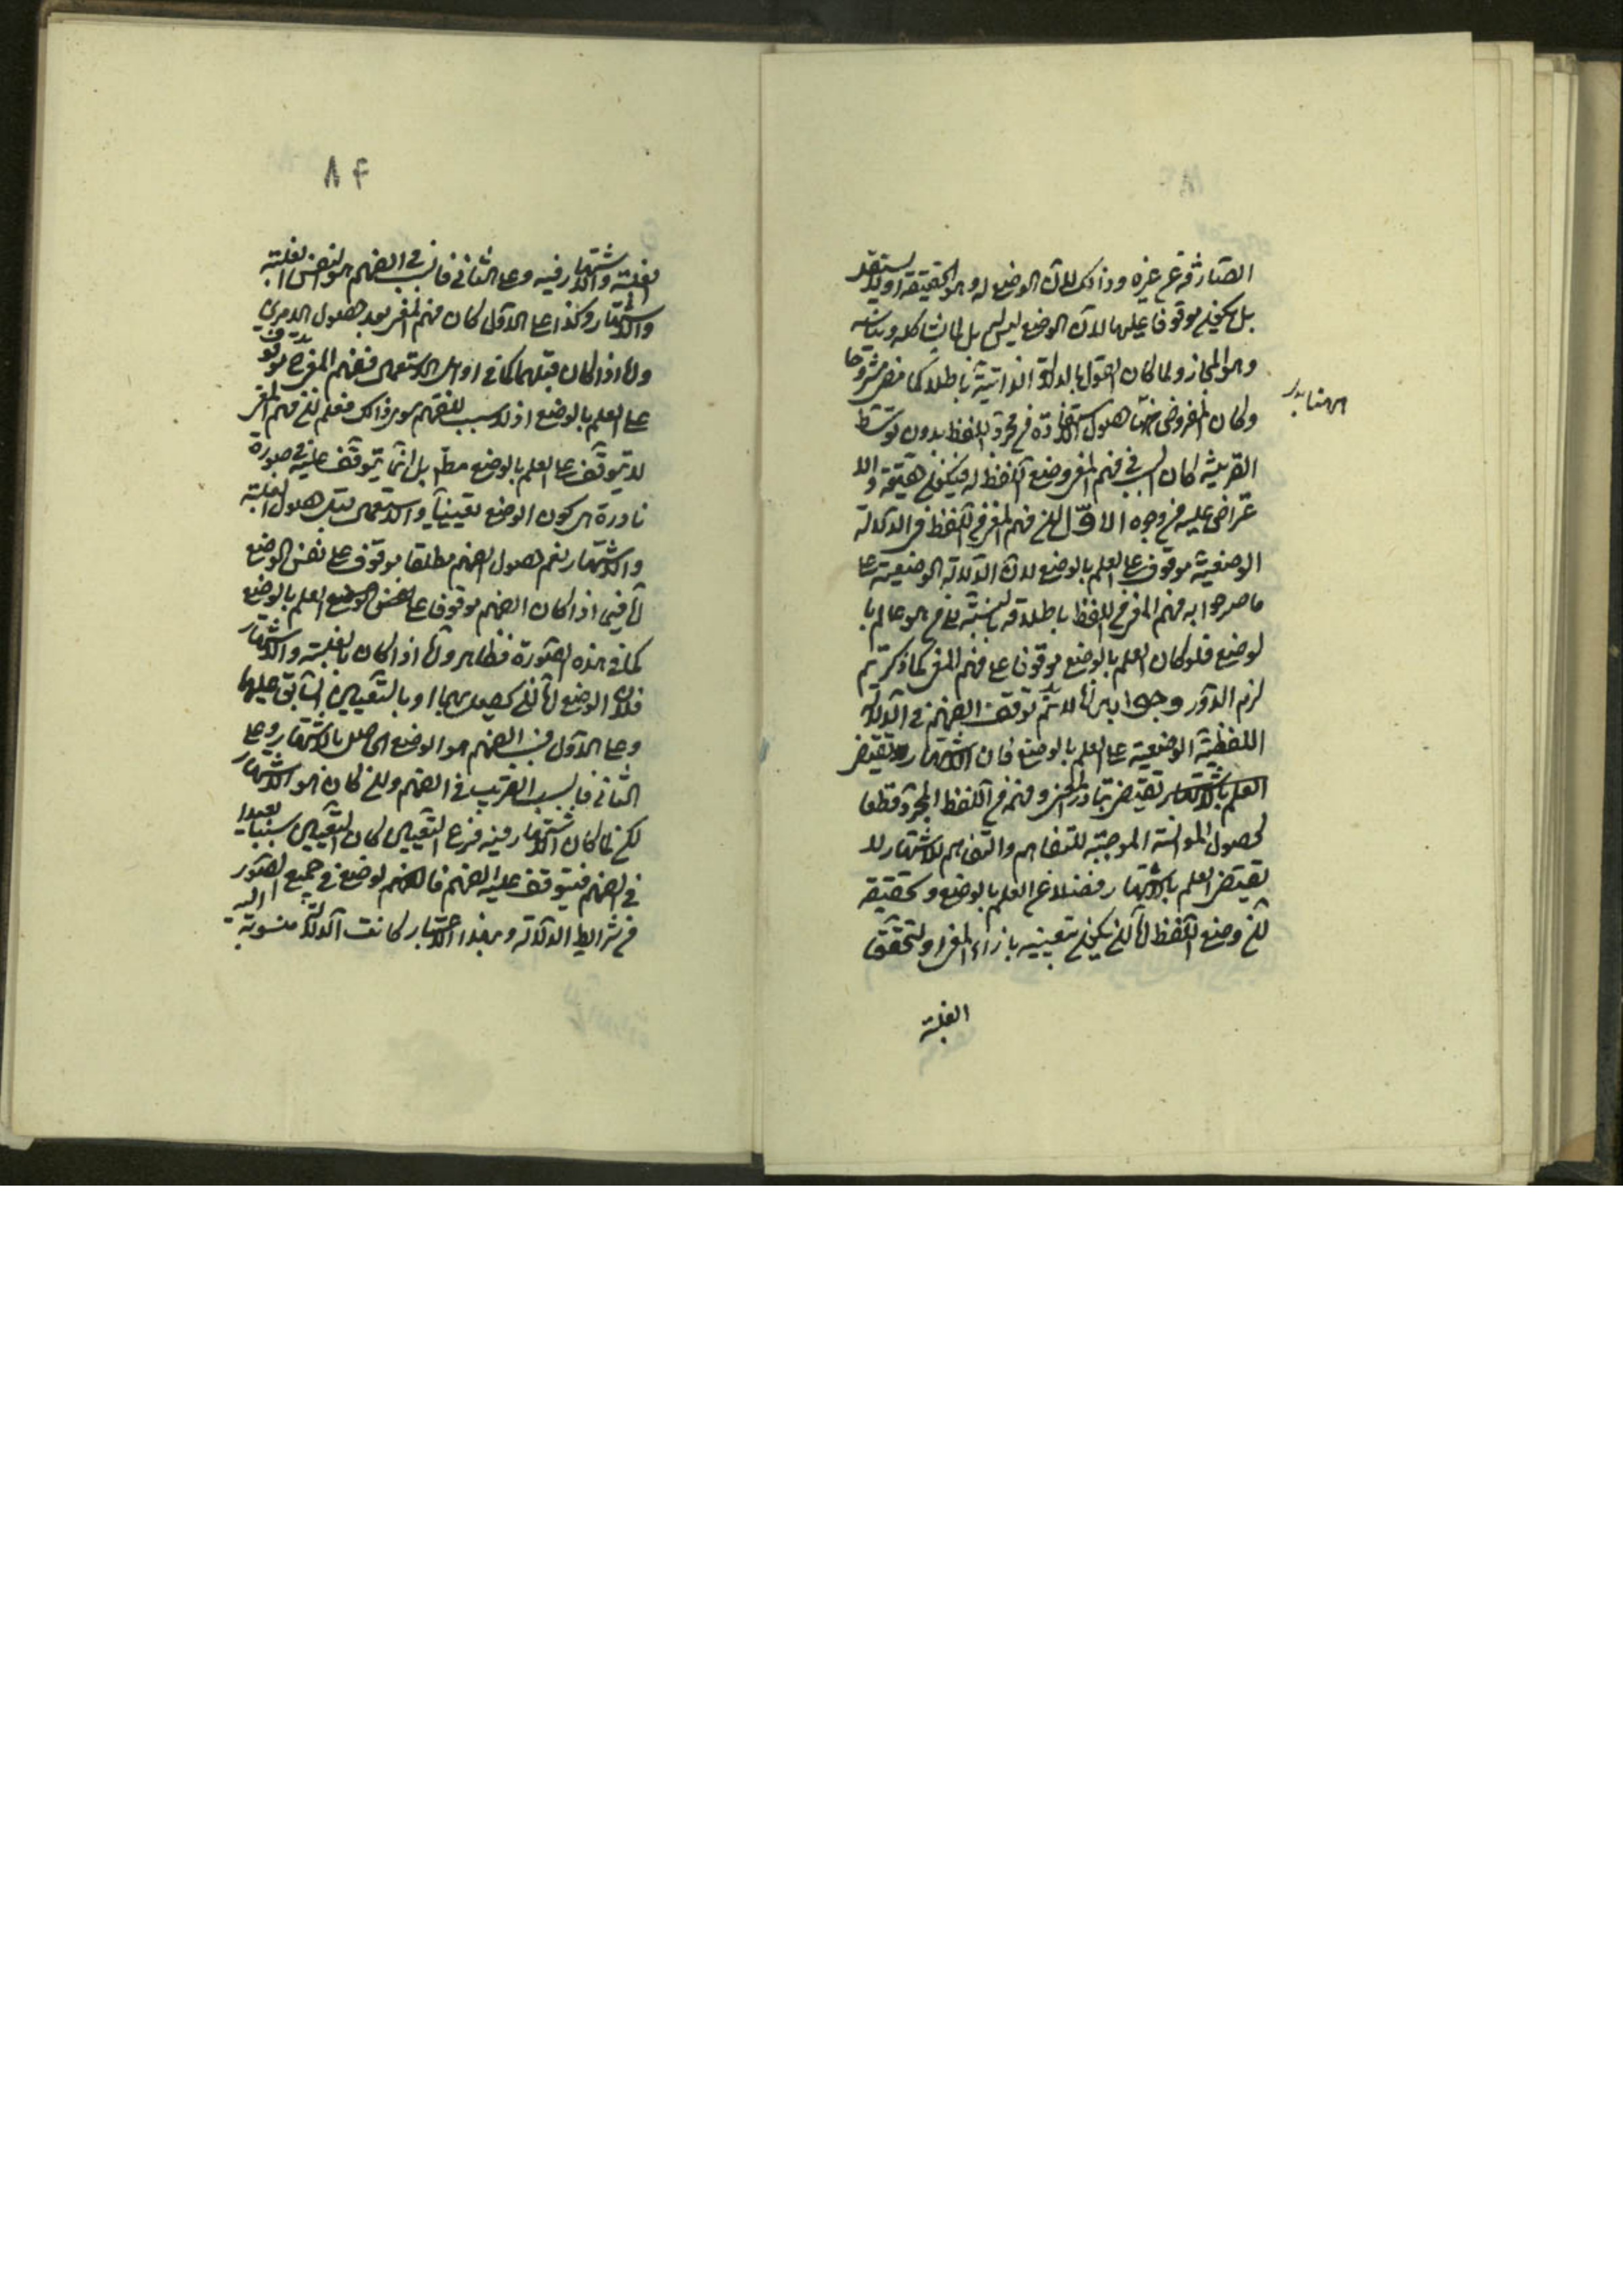 الصّارفة عن غيره وذلك لان الوضع له وهو الحقيقة او لا يستقد
بل يكون موقوفا عليها لان الوضع ليس له بل لما يشاكله ويناسبه
وهو المجاز ولما كان القول بالدلالة الذاتية باطلا كما مضى مشروحا
وكان المفروض حصول الاستفادة من مجرد اللفظ بدون توسّط
القرينة كان السبب في فهم المعنى وضع اللفظ له فيكون حقيقة والا
عتراض عليه من وجوه الاوّل ان فهم المعنى من اللفظ في الدلالة
الوضعية موقوف على العلم بالوضع لان الدلالة الوضعية على
ما صرحوا به فهم المعنى من اللفظ باطلاقه بالنسبة الى من هو عالم با
لوضع فلو كان العلم بالوضع موقوفا على فهم المعنى كما ذكرتم
لزم الدّور وجوابه انا لا نسلم توقف الفهم في الدلالة
اللفظية الوضعية على العلم بالوضع فان الاشتهار يقتضى
العلم بالاشتهار تقتضى تبادر المعنى وفهمه من اللفظ المجرد قطعا
لحصول الموانسة الموجبة للتفاهم والتفاهم للاشتهار لا
يقتضى العلم بالاشتهار فضلا عن العلم بالوضع وتحقيقه
ان وضع اللفظ اما ان يكون بتعيينه بازاء المعنى او لتحقق
الغلبة
٨٢
الغلبة والاشتهار فيه وعلى الثانى فالسبب في الفهم هو نفس الغلبة
والاشتهار وكذا على الاول ان كان فهم المعنى بعد حصول الامرين
واما اذا كان قبلهما كما في اوائل الاستعمال ففهم المعنى ح موقوف
على العلم بالوضع اذ لا سبب للفهم سوى ذلك فعلم ان فهم المعنى
لا يتوقف على العلم بالوضع مط بل انما يتوقف عليه في صورة
نادرة هي كون الوضع تعيينيا والاستعمال قبل حصول الغلبة
والاشتهار نعم حصول الفهم مطلقا موقوف على نفس الوضع
اما فيما اذا كان الفهم موقوفا على العلم بالوضع
كما في هذه الصورة فظاهر واما اذا كان بالغلبة والاشتهار
فلان الوضع اما ان يحصل بهما او بالتعيين السابق عليهما
وعلى الاول فسبب الفهم هو الوضع الحاصل بالاشتهار وعلى
الثانى فالسبب القريب في الفهم وان كان هو الاشتهار
لكن لما كان الاشتهار فيه فرع التعيين كان التعيين سببا بعيدا
في الفهم فيتوقف عليه الفهم فالفهم لوضع في جميع الصور
من شرايط الدلالة وبهذا الاعتبار كانت الدلالة منسوبة اليه